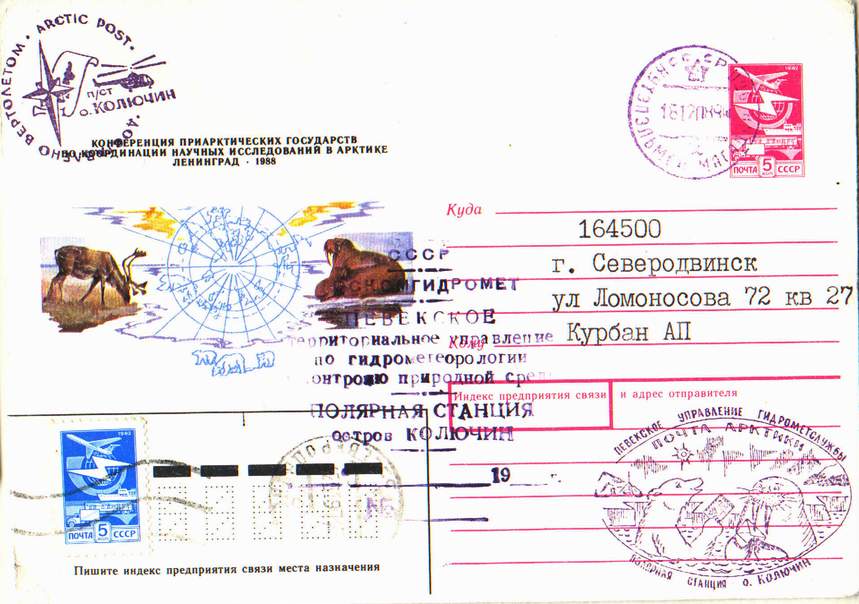 ARCTIC POST · ДОСТАВЛЕНО ВЕРТОЛЕТОМ ·
п/ст
о. КОЛЮЧИН
КОНФЕРЕНЦИЯ ПРИАРКТИЧЕСКИХ ГОСУДАРСТВ
ПО КООРДИНАЦИИ НАУЧНЫХ ИССЛЕДОВАНИЙ В АРКТИКЕ
ЛЕНИНГРАД · 1988
1982
ПОЧТА 5 КОП СССР
Куда
164500
г. Северодвинск
ул Ломоносова 72 кв 27
Кому
Курбан АП
СССР
ГОСКОМГИДРОМЕТ
ПЕВЕКСКОЕ
территориальное управление
по гидрометеорологии
контролю природной сре
ПОЛЯРНАЯ СТАНЦИЯ
остров КОЛЮЧИН
Индекс предприятия связи и адрес отправителя
19
ПЕВЕКСКОЕ УПРАВЛЕНИЕ ГИДРОМЕТСЛУЖБЫ
ПОЧТА АРКТИКИ
ПОЛЯРНАЯ СТАНЦИЯ о. КОЛЮЧИН
1982
ПОЧТА 5 КОП СССР
Пишите индекс предприятия связи места назначения